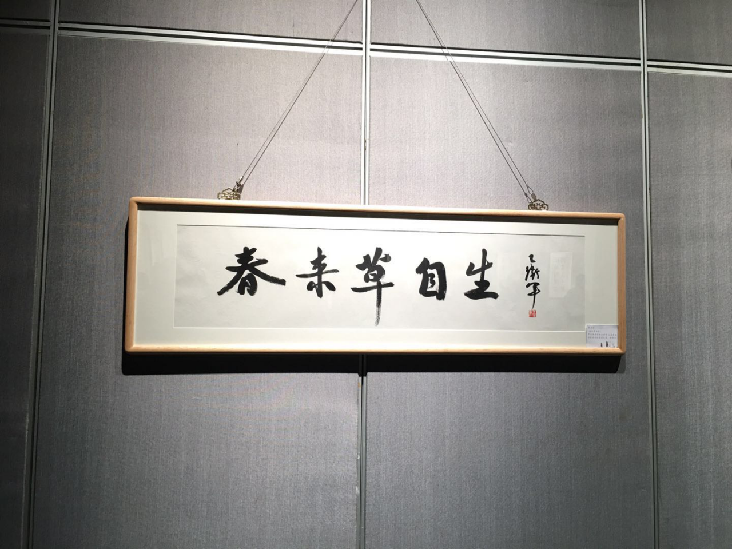 春来草自生